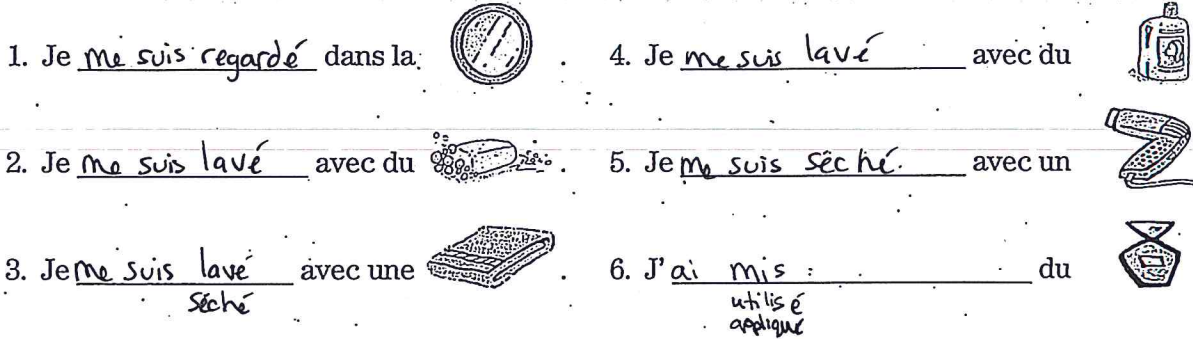 1. Je me suis regardé dans la .
2. Je me suis lavé avec du .
3. Je me suis lavé avec une .
séché
4. Je me suis lavé avec du
5. Je me suis séché. avec un
6. J'ai mis du
utilisé
appliqué